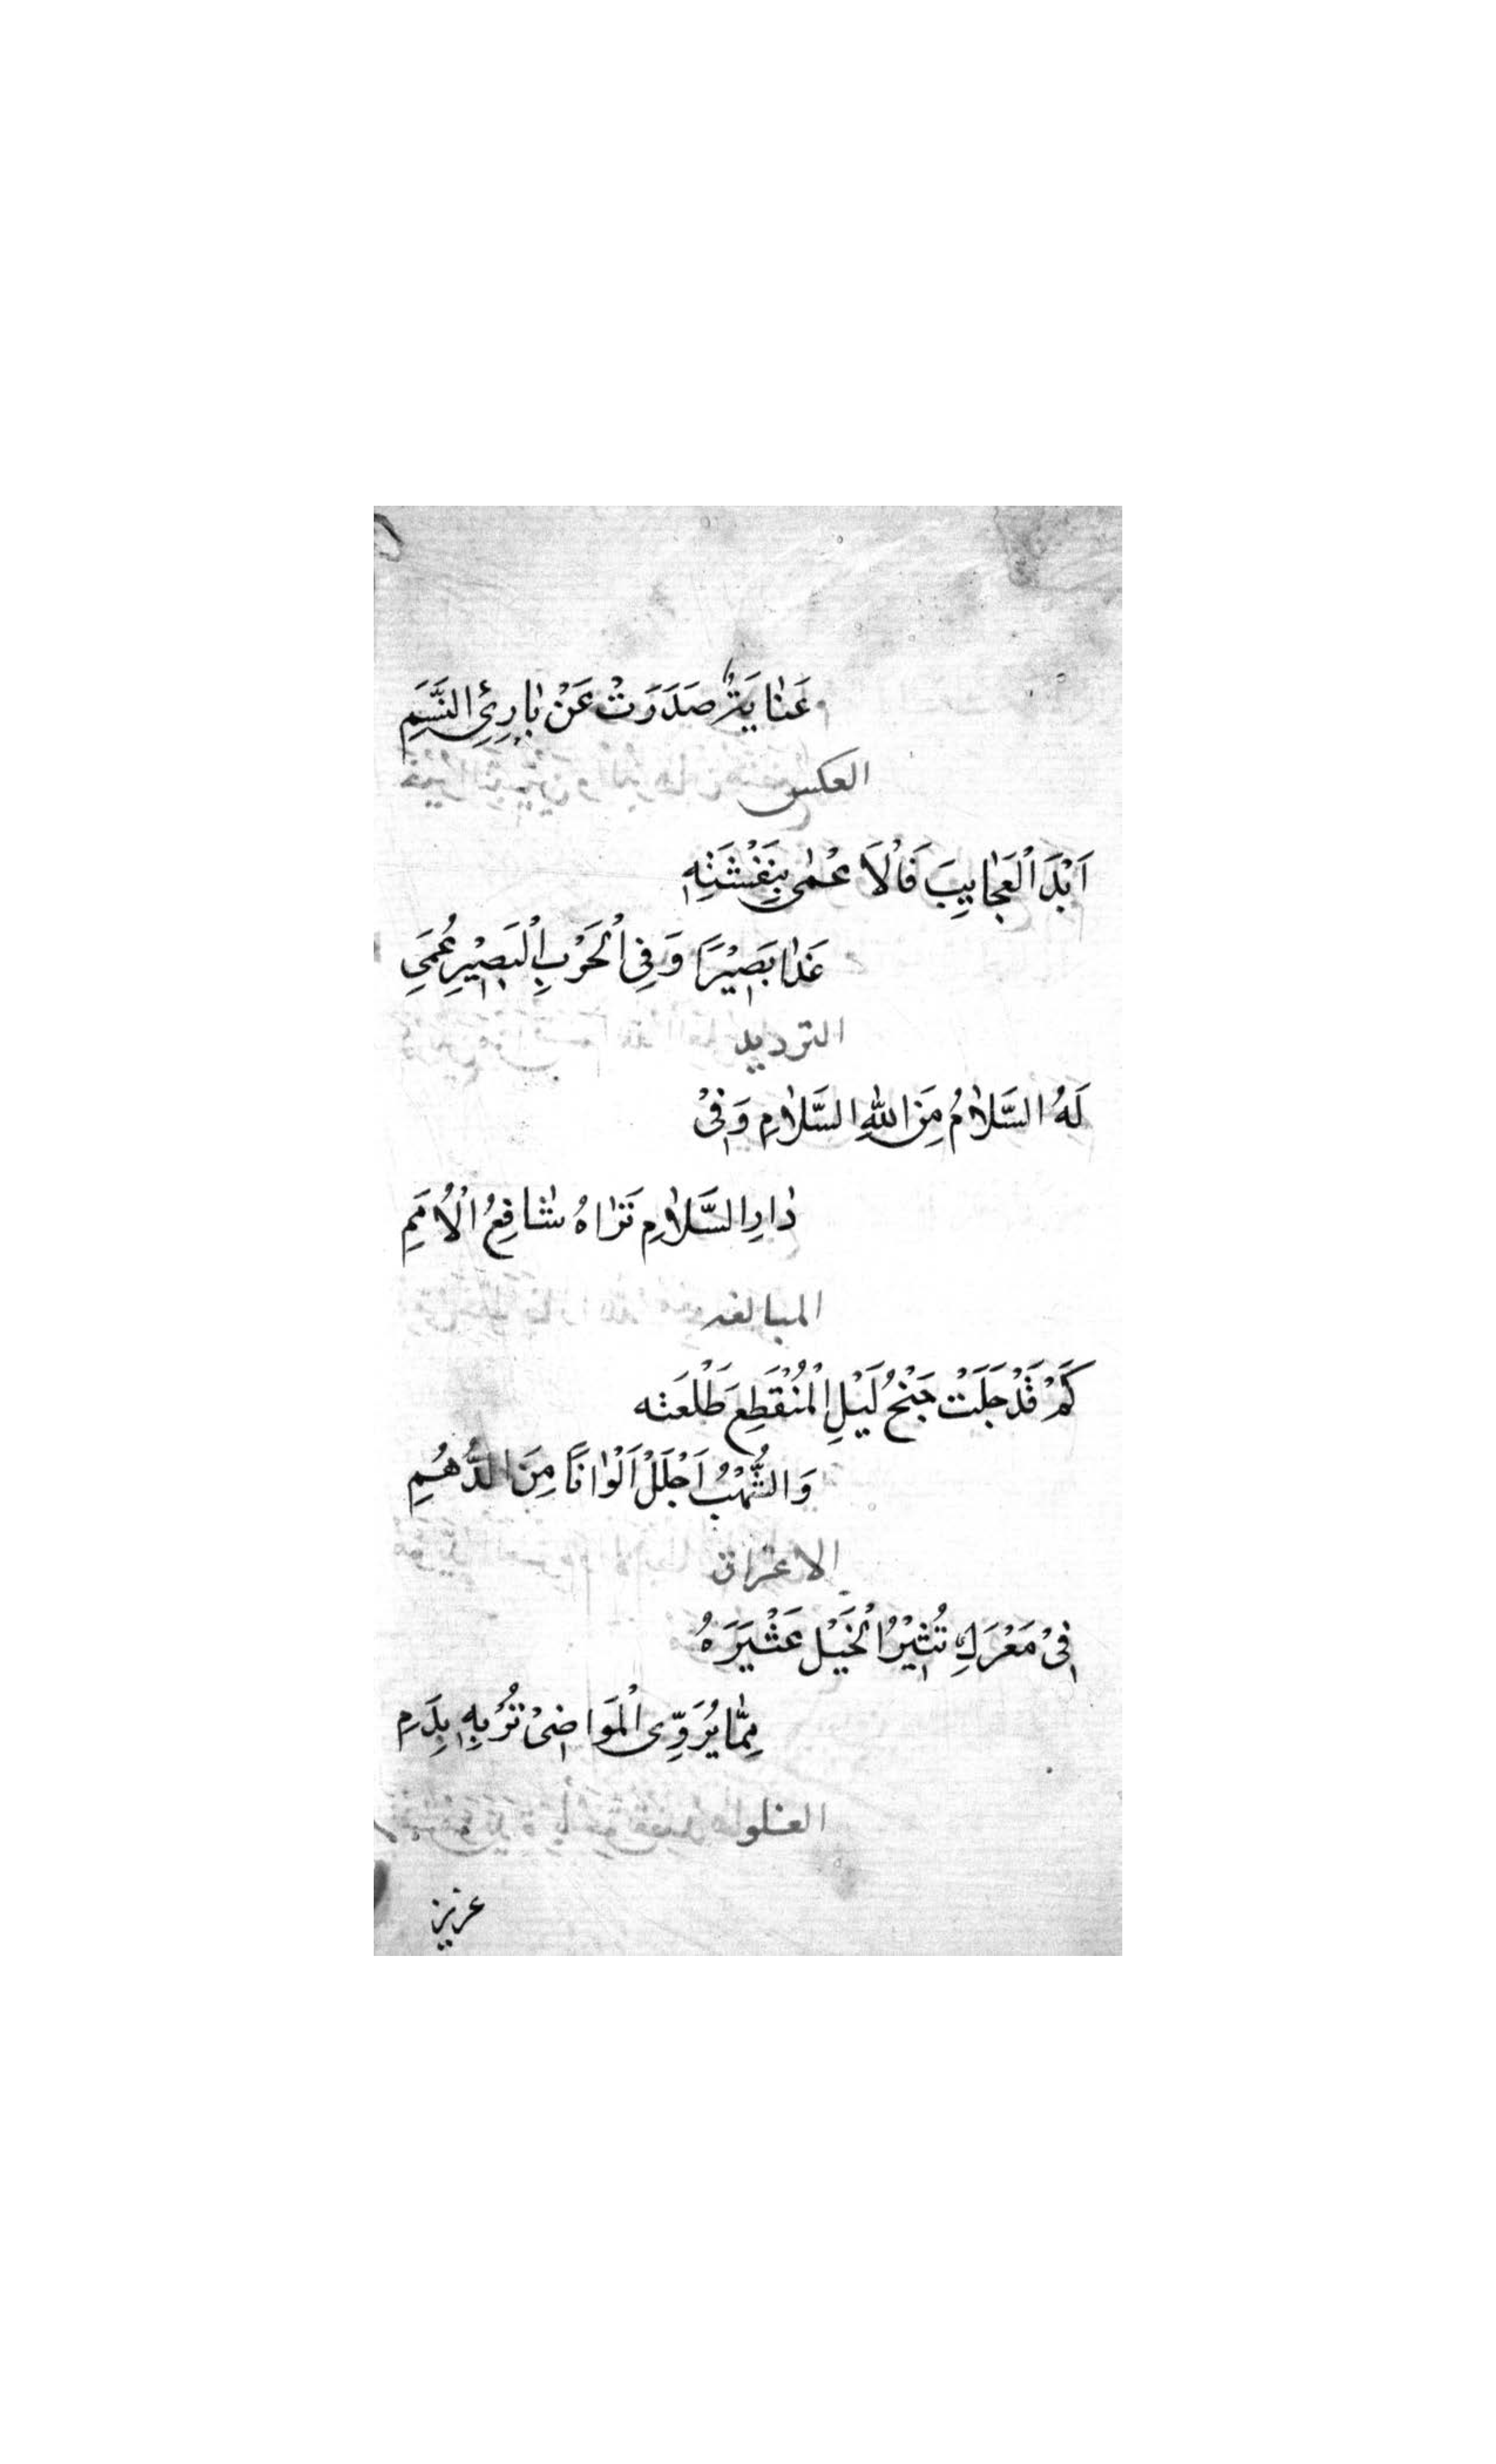 عَنٰايَةٌ صَدَرَتْ عَنْ بٰارِئِ النَّسَمِ
العكس
اَبْدَ الْعَجٰايِبَ فَالْاَعْمٰى بِنَفْثَتِهِ
غَدٰا بَصِيْرًا وَفِى الْحَرْبِ الْبَصِيْرِ عُمَىِ
الترديد
لَهُ السَّلٰامُ مِنَ اللهِ السَّلٰامِ وَفِىْ
دٰارِ السَّلٰامِ تَرٰاهُ شٰافِعُ الْاُمَمِ
المبالغه
كَمْ قَدْ جَلَتْ جَنْحُ لَيْلِ الْمُنْقَطِعِ طَلْعَتَه
وَالشُّهْبُ اَحْلَلْ اَلْوٰانًا مِنَ الدُّهُمِ
الاغراق
فِىْ مَعْرَكٍ تُثِيْرُ الْخَيْل عَثْيَرَهُ
مِمّٰا يُرَوِّى الْمَوَاضِىْ تُرْبِهِ بِدَمِ
الغلو
عزيز